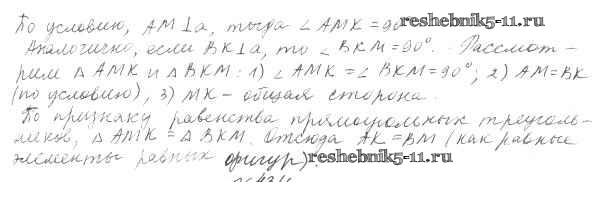 По условию, AM⊥a, тогда ∠AMK = 90°
reshebnik5-11.ru
Аналогично, если BK⊥a, то ∠BKM = 90°. Рассмот-
рим △AMK и △BKM: 1) ∠AMK = ∠BKM = 90°; 2) AM = BK
(по условию), 3) MK - общая сторона.
По признаку равенства прямоугольных треуголь-
ников, △AMK = △BKM. Отсюда AK = BM (как равные
элементы равных фигур).
reshebnik5-11.ru